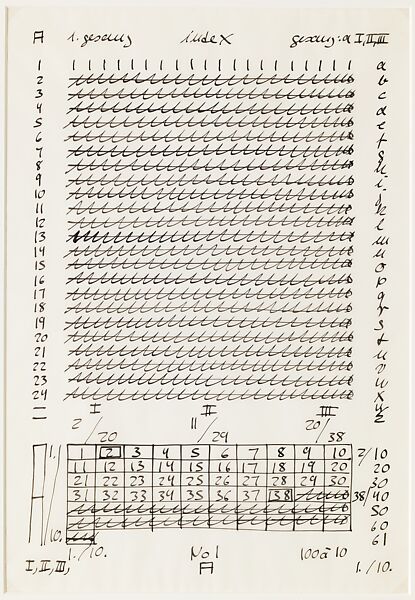 A 1. gesang index gesang: a I, II, III
1 | | | | | | | | | | | | | | | | | | | | a
2 b
3 c
4 d
5 e
6 f
7 g
8 h
9 i
10
11 k
12 l
13 m
14 n
15 o
16 p
17 q
18 r
19 s
20 t
21 u
22 v
23 w
24 x
I II III
2/20 11/29 20/38
1./ 1 2 3 4 5 6 7 8 9 10 2/10
11 12 13 14 15 16 17 18 19 20 20
21 22 23 24 25 26 27 28 29 30 30
31 32 33 34 35 36 37 38 38/40
50
60
10. 61
1./10. No 1 100 à 10
I, II, III, A 1./10.